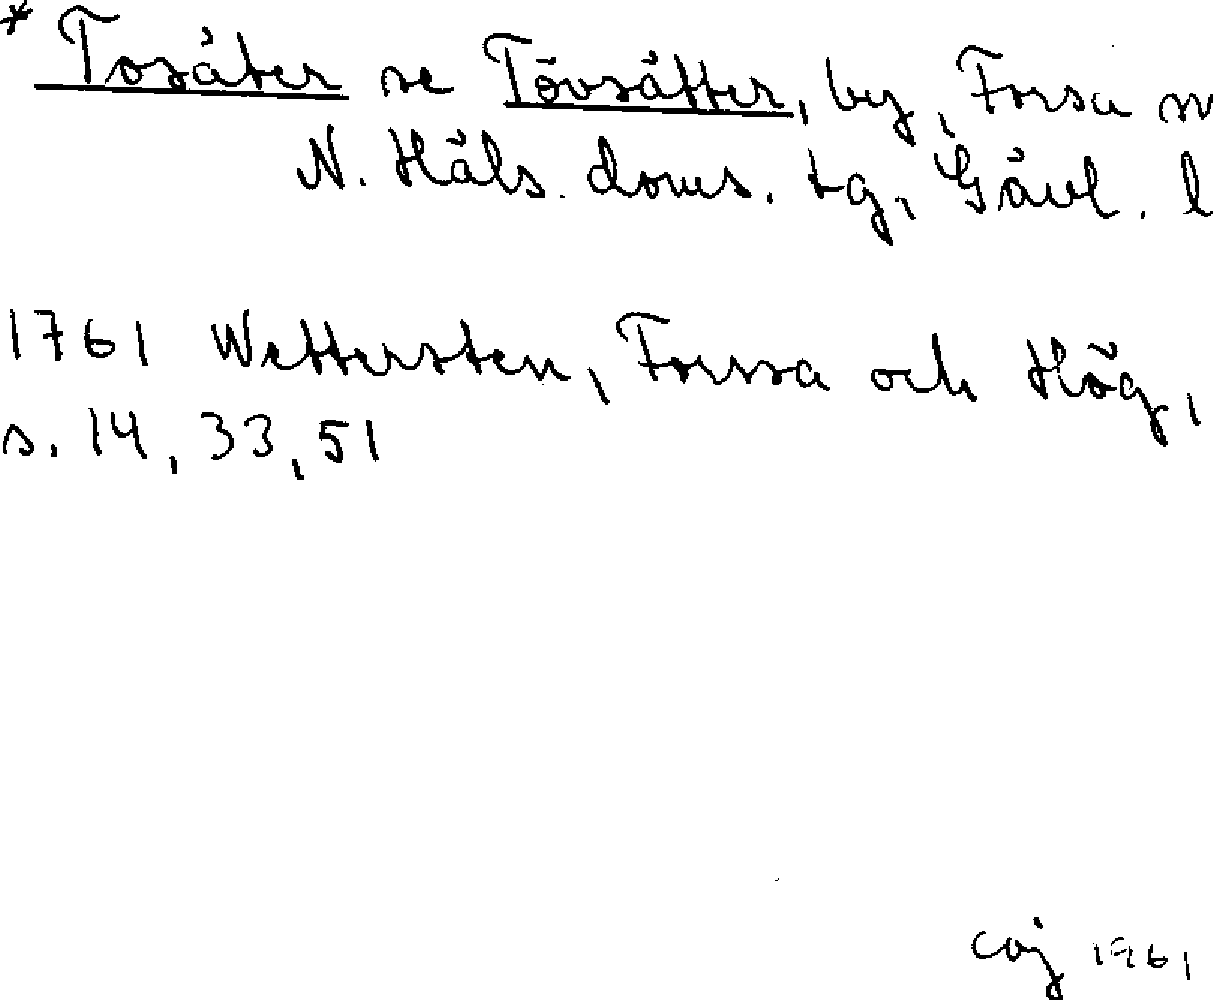 * Tosäter se Tövsätter, by, Forsa
N. Häls. doms. tg, Gävl. l
1761 Wettersten, Forssa och Hög,
s. 14, 33, 51
caj 1961